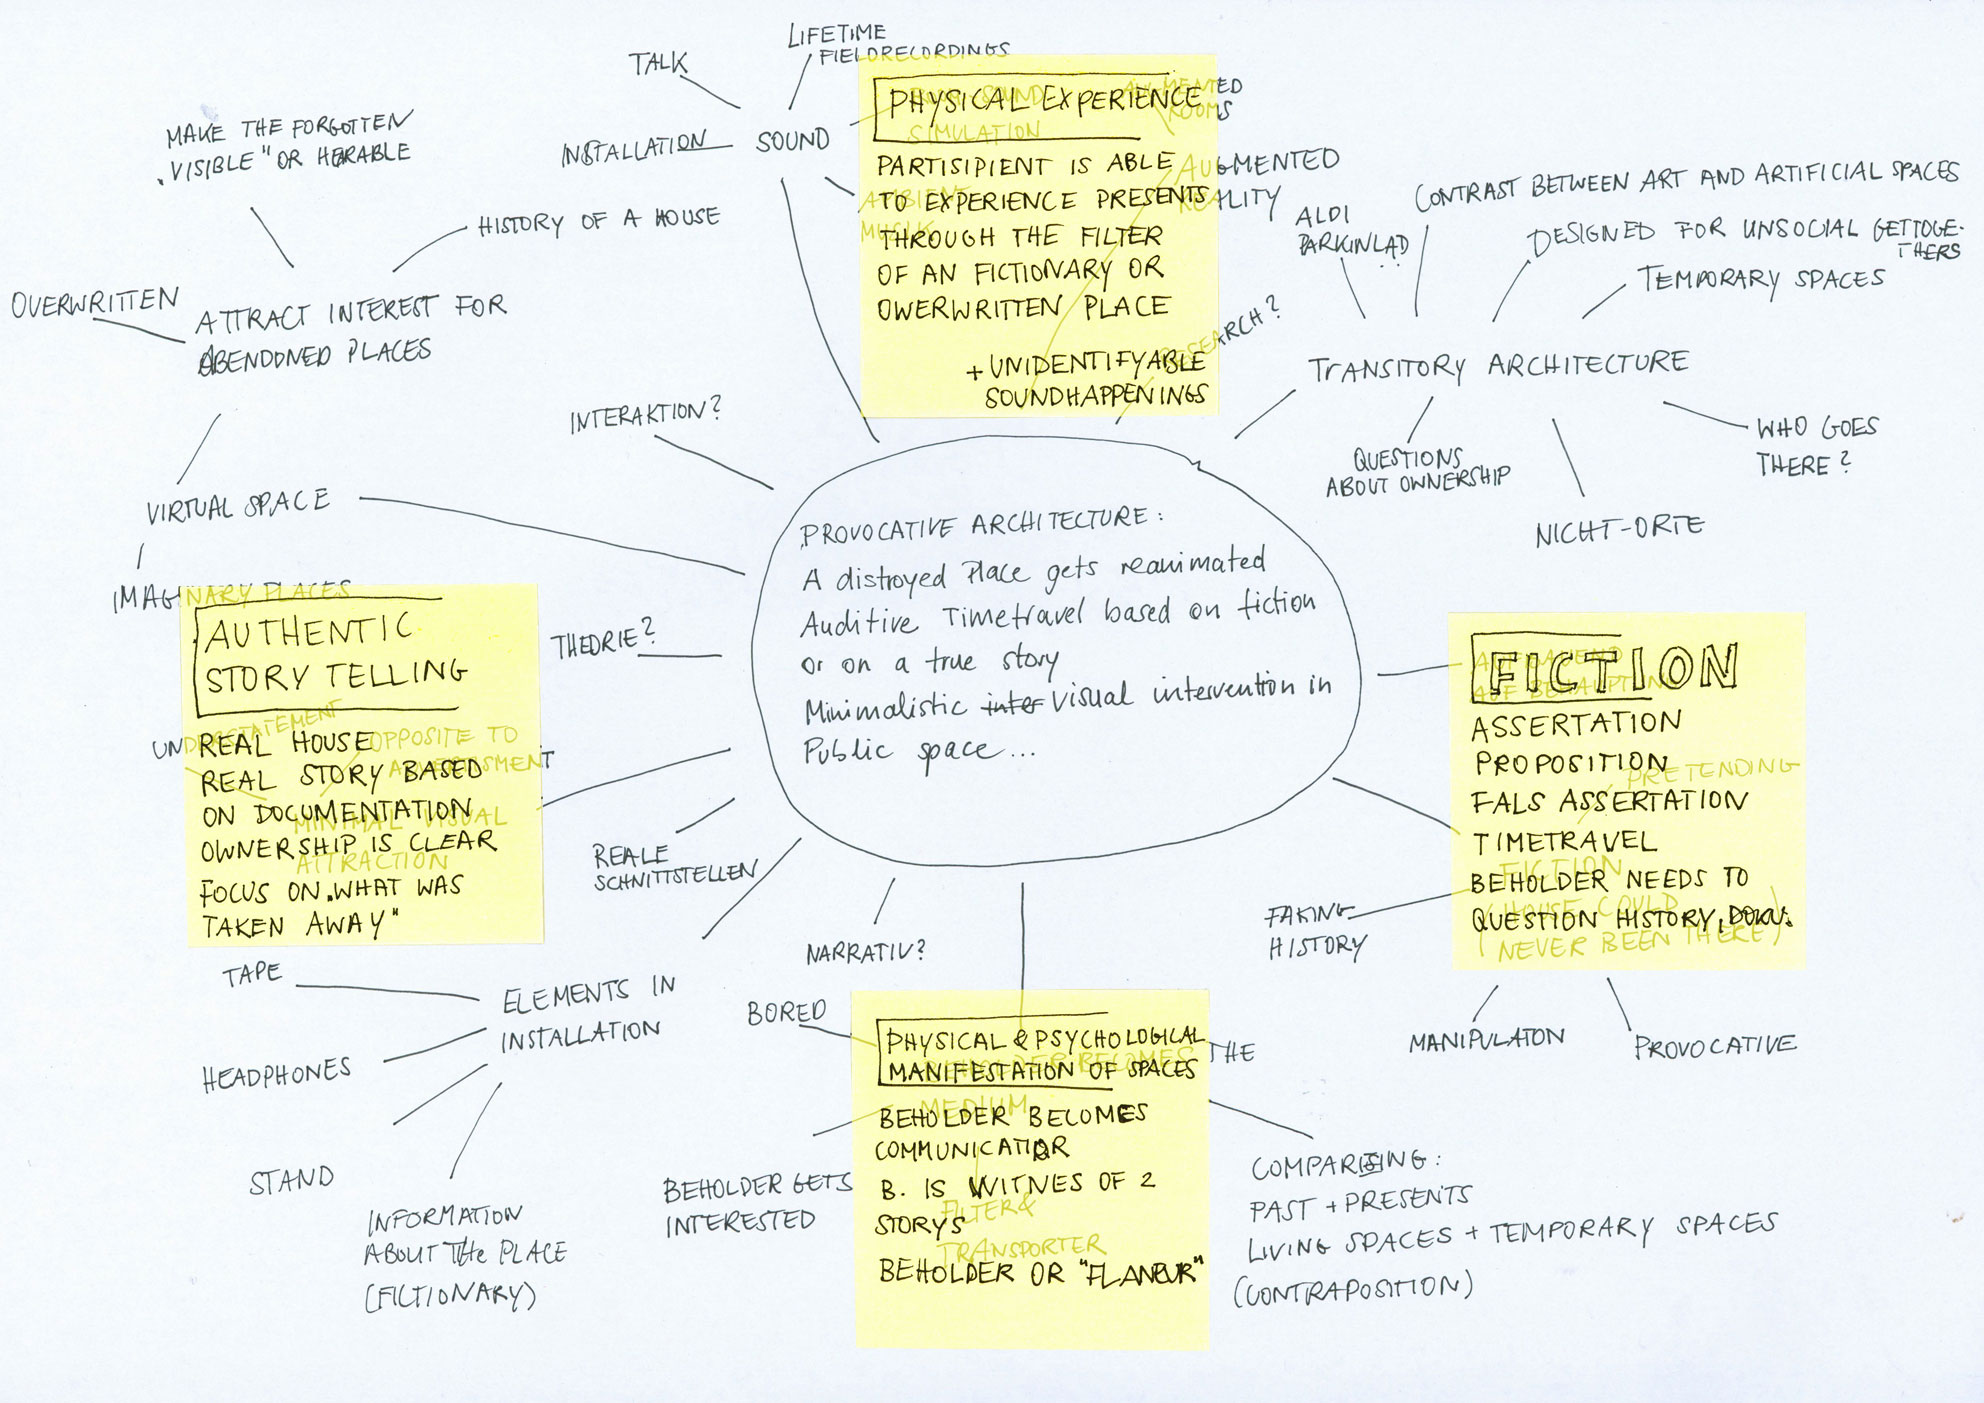 LIFETIME
FIELDRECORDINGS
TALK
INSTALLATION
SOUND
MAKE THE FORGOTTEN
„VISIBLE" OR HERABLE
HISTORY OF A HOUSE
OVERWRITTEN
ATTRACT INTEREST FOR
ABENDONED PLACES
VIRTUAL SPACE
IMAGINARY PLACES
INTERAKTION?
THEORIE?
PHYSICAL EXPERIENCE
PARTISIPIENT IS ABLE
TO EXPERIENCE PRESENTS
THROUGH THE FILTER
OF AN FICTIONARY OR
OWERWRITTEN PLACE
+ UNIDENTIFYABLE
SOUNDHAPPENINGS
SIMULATION
AMBIENT
MUSIK
AUGMENTED
ROOMS
AUGMENTED
REALITY
RESEARCH?
ALDI
PARKINLAD
CONTRAST BETWEEN ART AND ARTIFICIAL SPACES
DESIGNED FOR UNSOCIAL GETTOGE-
THERS
TEMPORARY SPACES
TRANSITORY ARCHITECTURE
QUESTIONS
ABOUT OWNERSHIP
NICHT-ORTE
WHO GOES
THERE?
PROVOCATIVE ARCHITECTURE:
A distroyed Place gets reanimated
Auditive Timetravel based on fiction
or on a true story
Minimalistic inter visual intervention in
Public space...
AUTHENTIC
STORY TELLING
REAL HOUSE
REAL STORY BASED
ON DOCUMENTATION
OWNERSHIP IS CLEAR
FOCUS ON „WHAT WAS
TAKEN AWAY"
UNDERSTATEMENT
OPPOSITE TO
ADVERTISMENT
MINIMAL VISUAL
ATTRACTION
REALE
SCHNITTSTELLEN
NARRATIV?
ELEMENTS IN
INSTALLATION
TAPE
HEADPHONES
STAND
INFORMATION
ABOUT THE PLACE
(FICTIONARY)
FICTION
ASSERTATION
PROPOSITION
FALS ASSERTATION
TIMETRAVEL
BEHOLDER NEEDS TO
QUESTION HISTORY, DOKU.
AUFBAUEND
AUF BEHAUPTUNG
PRETENDING
FICTION
(HOUSE COULD
NEVER BEEN THERE)
FAKING
HISTORY
MANIPULATON
PROVOCATIVE
BORED
PHYSICAL & PSYCHOLOGICAL
MANIFESTATION OF SPACES
BEHOLDER BECOMES
COMMUNICATOR
B. IS WITNES OF 2
STORYS
BEHOLDER OR "FLANEUR"
BEHOLDER BECOMES THE
MEDIUM
FILTER &
TRANSPORTER
BEHOLDER GETS
INTERESTED
COMPARISING:
PAST + PRESENTS
LIVING SPACES + TEMPORARY SPACES
(CONTRAPOSITION)